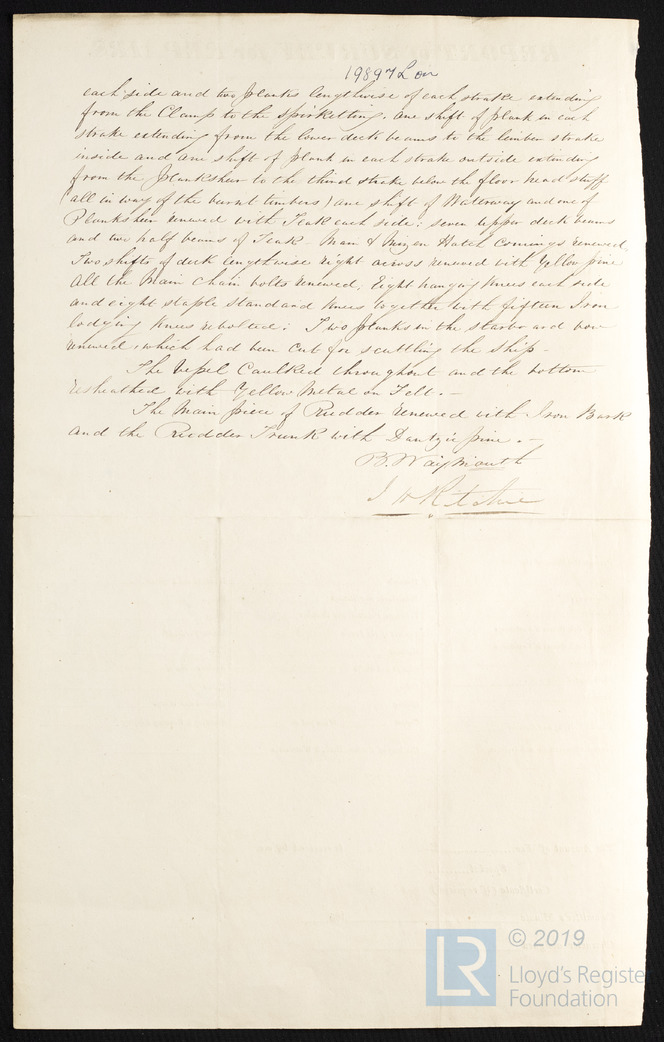 19897 Lon
each side and two planks lengthwise of each strake extending
from the Clamp to the Spirketting. one shift of plank in each
strake extending from the lower deck beams to the limber strake
inside and one shift of plank in each strake outside extending
from the Planksheer to the third strake below the floor head stuff
(all in way of the burnt timbers) one shift of Waterway and one of
Planksheer renewed with Teak each side: seven upper deck beams
and two half beams of Teak. Main & Mizen Hatch Comings renewed
Two shifts of deck lengthwise right across renewed with Yellow pine
All the Main Chain bolts renewed, Eight hanging Knees each side
and eight staple standard Knees together with fifteen Iron
lodging Knees rebolted: Two planks in the starboard bow
renewed, which had been Cut for scuttling the Ship -
The Vessel Caulked throughout and the bottom
resheathed with Yellow Metal on Felt. -
The Main piece of Rudder renewed with Iron Bark
and the Rudder Trunk with Dantzic pine. -
B. Waymouth
J W Ritchie
LR
© 2019
Lloyd's Register
Foundation